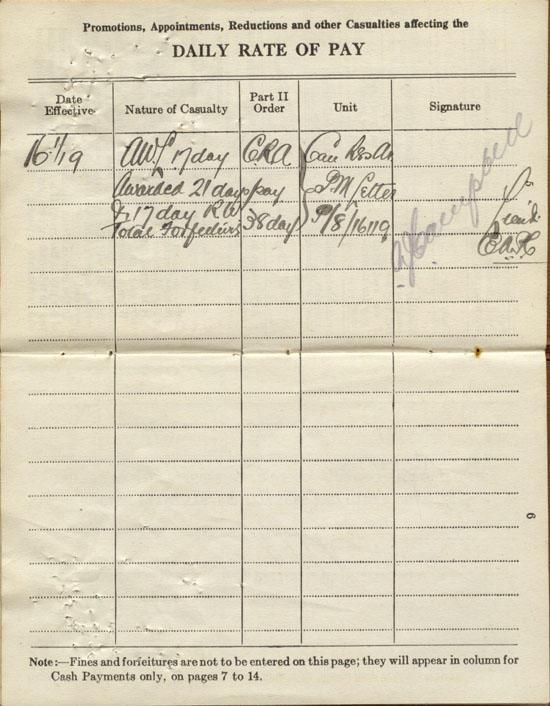 Promotions, Appointments, Reductions and other Casualties affecting the
DAILY RATE OF PAY
Date Effective
Nature of Casualty
Part II Order
Unit
Signature
16/1/19 AWL 17 day C.R.A Can Res Art
Awarded 21 days pay P.M. Letter
& 17 day R.W. P/8/16119
Total Forfeiture 38 days
Campbell
Lieut.
C.A.P.C
6
Note:—Fines and forfeitures are not to be entered on this page; they will appear in column for
Cash Payments only, on pages 7 to 14.